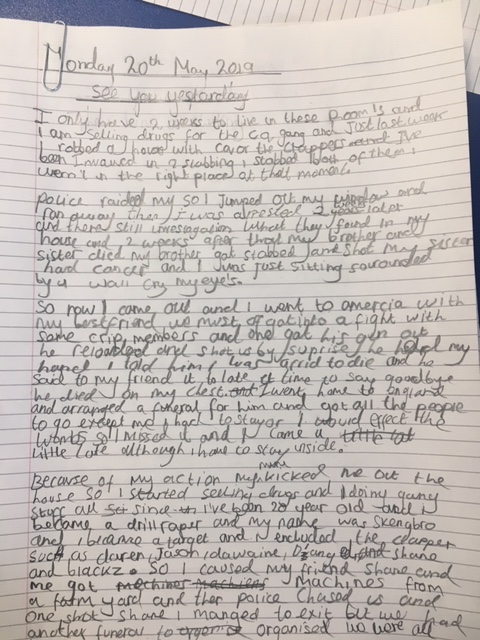 Monday 20th May 2019
See you yesterday
I only have 2 weeks to live in these Room's and
I am selling drugs for the ca gang and just last week
I robbed a house with cavor the and I've
been Invauned in 2 stabbing i stabbed both of them i
weren't in the right place at that moment.
Police raided my so I Jumped out my window and
ran away then I was arrested 2 later
and there still invesagation what they found in my
house and 2 weeks after that my brother and
sister died my brother got stabbed and shot my sister
had cancer and I was just sitting sourounded
by a wall cry my eye's.
So now I came out and I went to amercia with
my bestfriend we must of got into a fight with
some crip members and one got his gun out
he reloabded and shot us by suprise he held my
hand I told him I was afrid to die and he
said to my friend it to late time to say goodbye
he died on my chest. I went home to england
and arranged a funeral for him and got all the people
to go except me I had to stayor I would effect the
wombs so I missed it and I came a little lat
little late although i have to stay inside.
Because of my action my mum kicked me out the
house so I started selling drugs and I doiny gang
stuff all since i've been 20 year old and I
became a drill raper and my name was Skengbro
and i became a target and I encluded the clapper
such as daren, Jason, dawaine, and shane
and blackz. So I caused my friend Shane and
me got machines from
a farm yard and ther police chased us and
one shot Shane I manged to exit but we had
another funeral to organised we were afrad